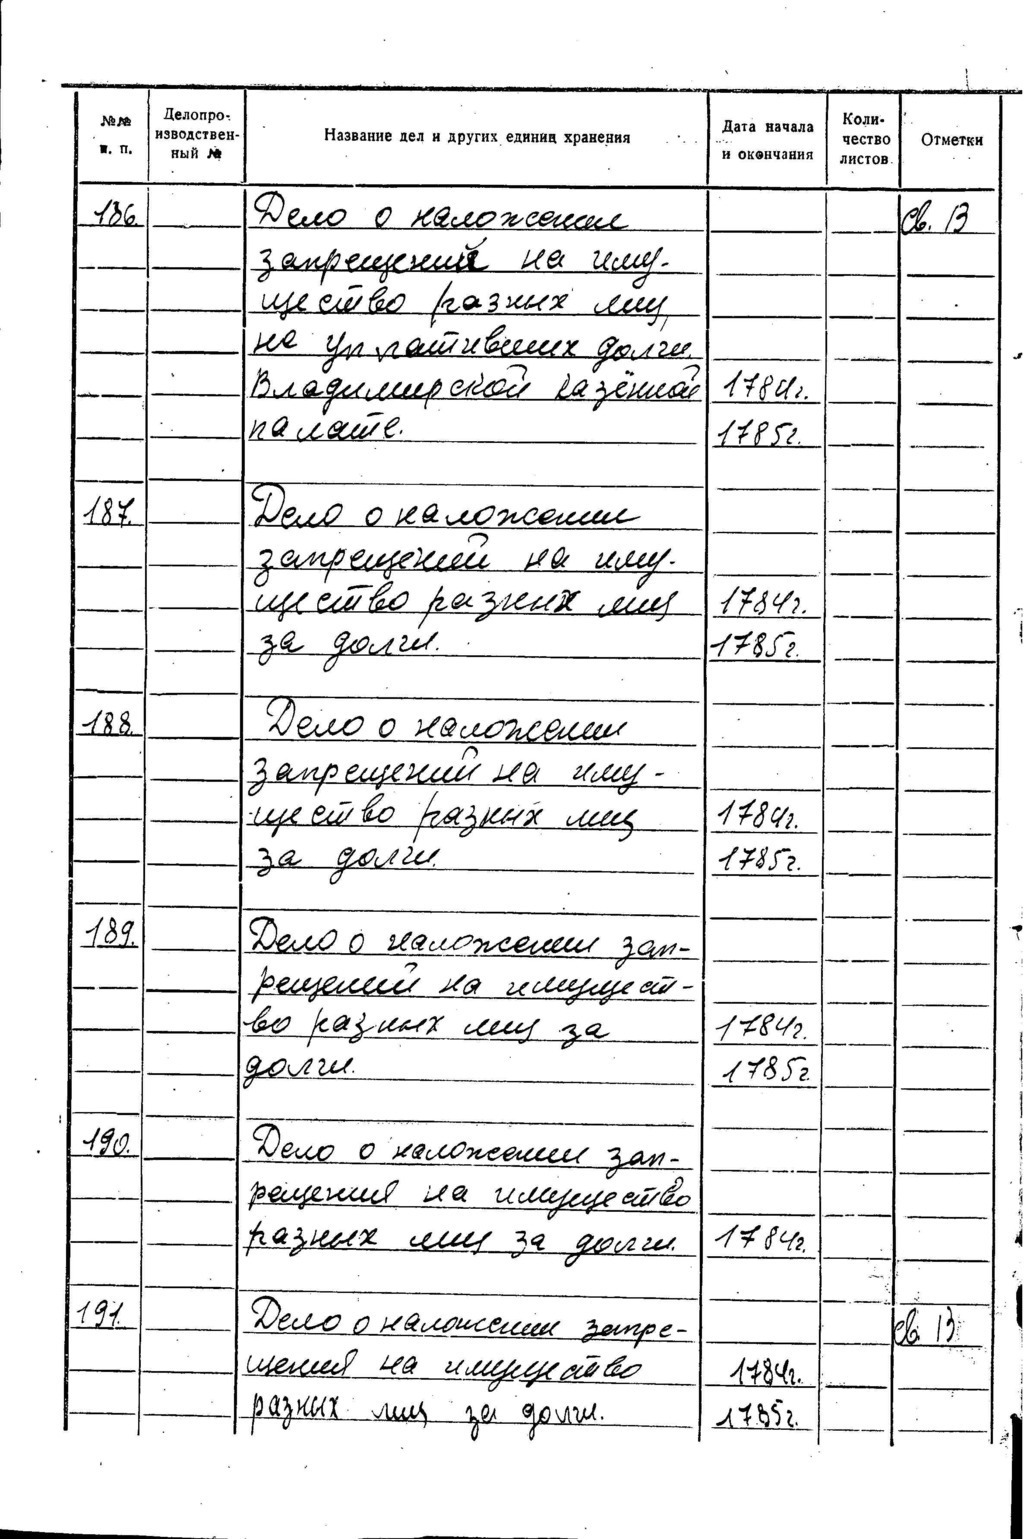 №№ п. п. Делопроизводственный № Название дел и других единиц хранения Дата начала и окончания Количество листов Отметки
186. Дело о наложении св. 13
запрещений на иму-
щество разных лиц,
не уплативших долги
Владимирской казённой 1784г.
палате. 1785г.
187. Дело о наложении
запрещений на иму-
щество разных лиц 1784г.
за долги. 1785г.
188. Дело о наложении
запрещений на иму-
щество разных лиц 1784г.
за долги. 1785г.
189. Дело о наложении зап-
рещений на имущест-
во разных лиц за 1784г.
долги. 1785г.
190. Дело о наложении зап-
рещения на имущество
разных лиц за долги. 1784г.
191. Дело о наложении запре- св. 13
щения на имущество 1784г.
разных лиц за долги. 1785г.